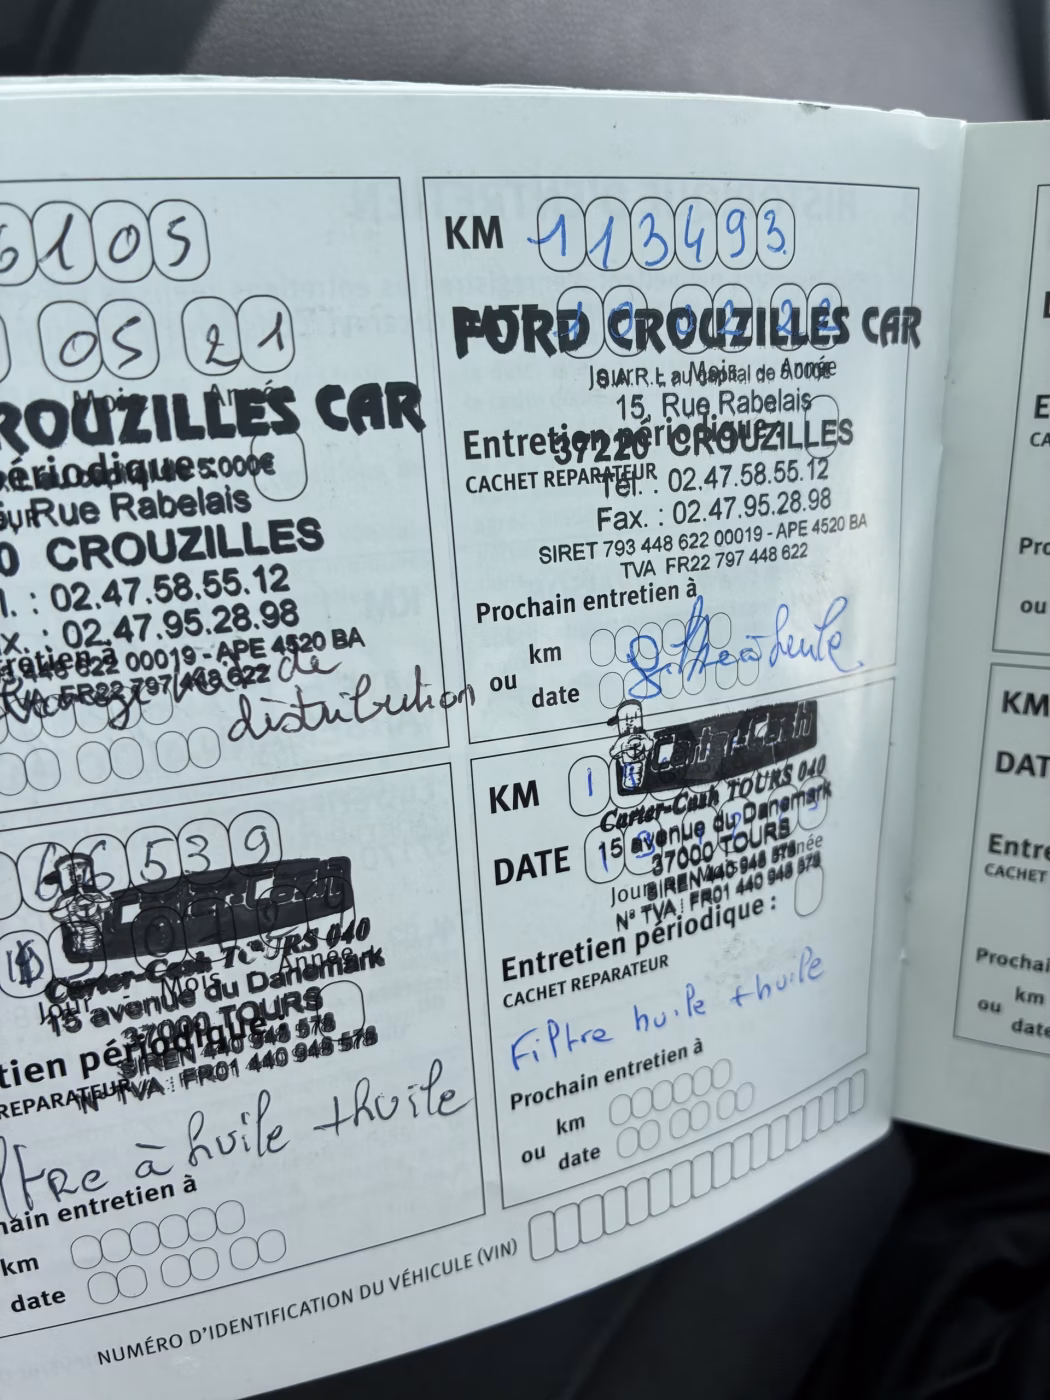 6105
05 21
Mois Année
CROUZILLES CAR
périodique: 5.000€
Rue Rabelais
0 CROUZILLES
l. : 02.47.58.55.12
x. : 02.47.95.28.98
622 00019 - APE 4520 BA
TVA FR22 797 448 622
de
distribution
KM 113493
FORD CROUZILLES CAR
S.A.R.L au capital de 5.000€
15, Rue Rabelais
Entretien périodique:
37220 CROUZILLES
CACHET REPARATEUR
Tél. : 02.47.58.55.12
Fax. : 02.47.95.28.98
SIRET 793 448 622 00019 - APE 4520 BA
TVA FR22 797 448 622
Prochain entretien à
km
ou date
66539
Carter-Cash TOURS 040
Jour Mois Année
15 avenue du Danemark
37000 TOURS
tien périodique
SIREN 440 948 578
REPARATEUR
N° TVA : FR01 440 948 578
ltre à huile + huile
hain entretien à
km
date
KM 1
Carter-Cash
Carter-Cash TOURS 040
DATE
15 avenue du Danemark
37000 TOURS
Jour
SIREN 440 948 578
N° TVA : FR01 440 948 578
Entretien périodique :
CACHET REPARATEUR
Filtre huile + huile
Prochain entretien à
km
ou date
NUMÉRO D'IDENTIFICATION DU VÉHICULE (VIN)
E
CA
Pro
ou
KM
DAT
Entre
CACHET
Prochai
km
ou
date